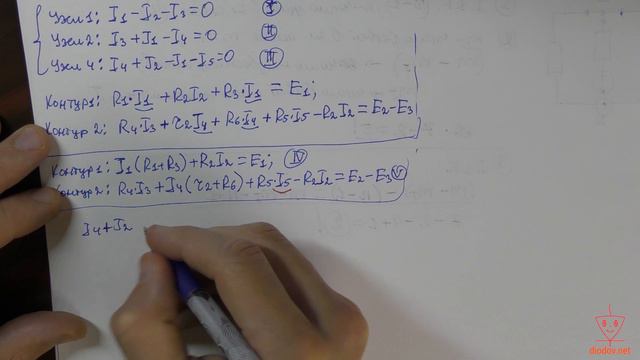 Узел 1: I1 - I2 - I3 = 0 I
Узел 2: I3 + J1 - I4 = 0 II
Узел 4: I4 + J2 - J1 - I5 = 0 III
Контур 1: R1·I1 + R2I2 + R3·I1 = E1;
Контур 2: R4·I3 + r2I4 + R6I4 + R5I5 - R2I2 = E2 - E3
Контур 1: I1(R1+R3) + R2I2 = E1; IV
Контур 2: R4I3 + I4(r2+R6) + R5·I5 - R2I2 = E2 - E3 V
I4 + J2
diodov.net